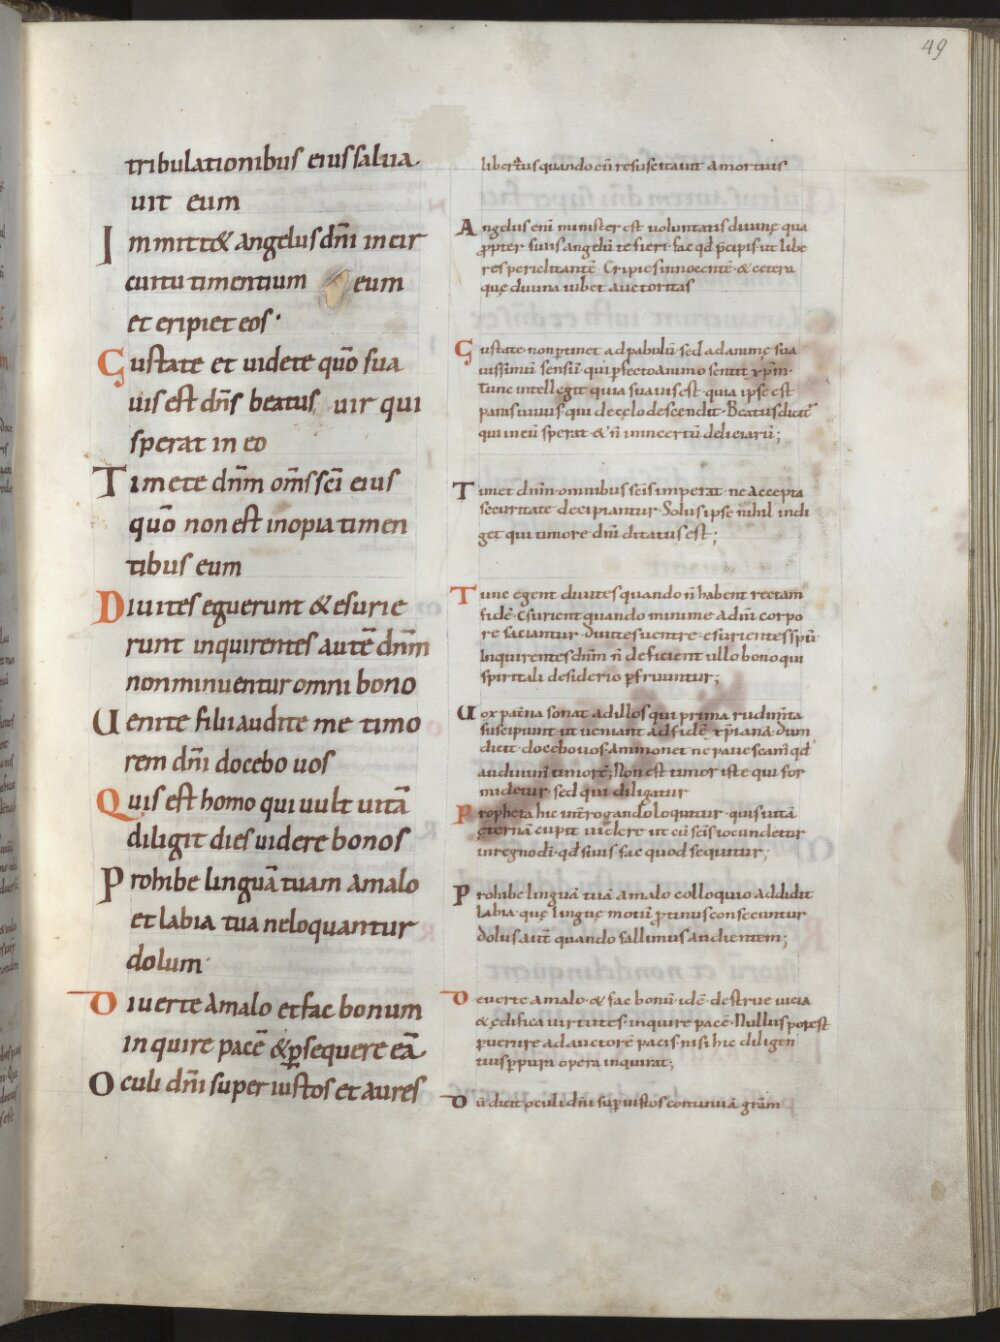 49
tribulationibus eius salua
uit eum
Immittet angelus dñi in cir
cuitu timentium eum
et eripiet eos·
Gustate et uidete quō sua
uis est dñs beatus uir qui
sperat in eo
Timete dñm om̄s sc̄i eius
quō non est inopia timen
tibus eum
Diuites eguerunt & esurie
runt inquirentes autē dñm
non minuentur omni bono
Uenite filii audite me timo
rem dñi docebo uos
Quis est homo qui uult uitā
diligit dies uidere bonos
Prohibe linguā tuam a malo
et labia tua ne loquantur
dolum·
Diuerte a malo et fac bonum
inquire pacē & ꝑsequere eā
Oculi dñi super iustos et aures
libertus quando eū resuscitauit a mortuis
Angelus eni minister est uoluntatis diuinę qui
ꝓpter suis angelū
res periclitantē Eripies innocentē & cetera
quę diuina iubet auctoritas
Gustate non ꝑtinet ad pabulū sed ad animę sua
uissimū sensū qui ꝑfecto animo sentit xp̄m·
Tunc intellegit quia suauis est· quia ipse est
panis uiuus qui de cęlo descendit· Beatus dicit
qui in eū sperat & n̄ in incertū deliciarū;
Timet dñm omnibus sc̄is imperat· ne accepta
securitate decipiantur· Solus ipse nihil indi
get qui timore dñi ditatus est;
Tunc egent diuites quando n̄ habent rectam
fidē· Esurient quando minime a dñi corpo
re saciantur· diuites uentre· esurientes sp̄u
Inquirentes dñm n̄ deficient ullo bono qui
spiritali desiderio ꝑfruuntur;
Uox pat̄na sonat ad illos qui prima rudim̄ta
suscipiunt· ut ueniant ad fidē xp̄ianā· dum
dicit· docebo uos· Ammonet ne pauescant qd̄
audiunt timorē; Non est timor iste qui for
midetur sed qui diligatur
Propheta hic int̄rogando loquitur· quis uitā
ęternā cupit uidere ut cū sc̄is iocundetur
in regno dī· qd̄ si uis fac quod sequitur;
Prohibe linguā tuā a malo colloquio addidit
labia· quę linguę motū ꝓtinus consecuntur
dolus aut̄ quando fallimus audientem;
Deuerte a malo· & fac bonū· idē· destrue uicia
& ędifica uirtutes· inquire pacē· Nullus potest
ꝑuenire ad auctorē pacis nisi hic diligen
tius ꝑ pura opera inquirat;
Dū dicit oculi dñi sup iustos grām